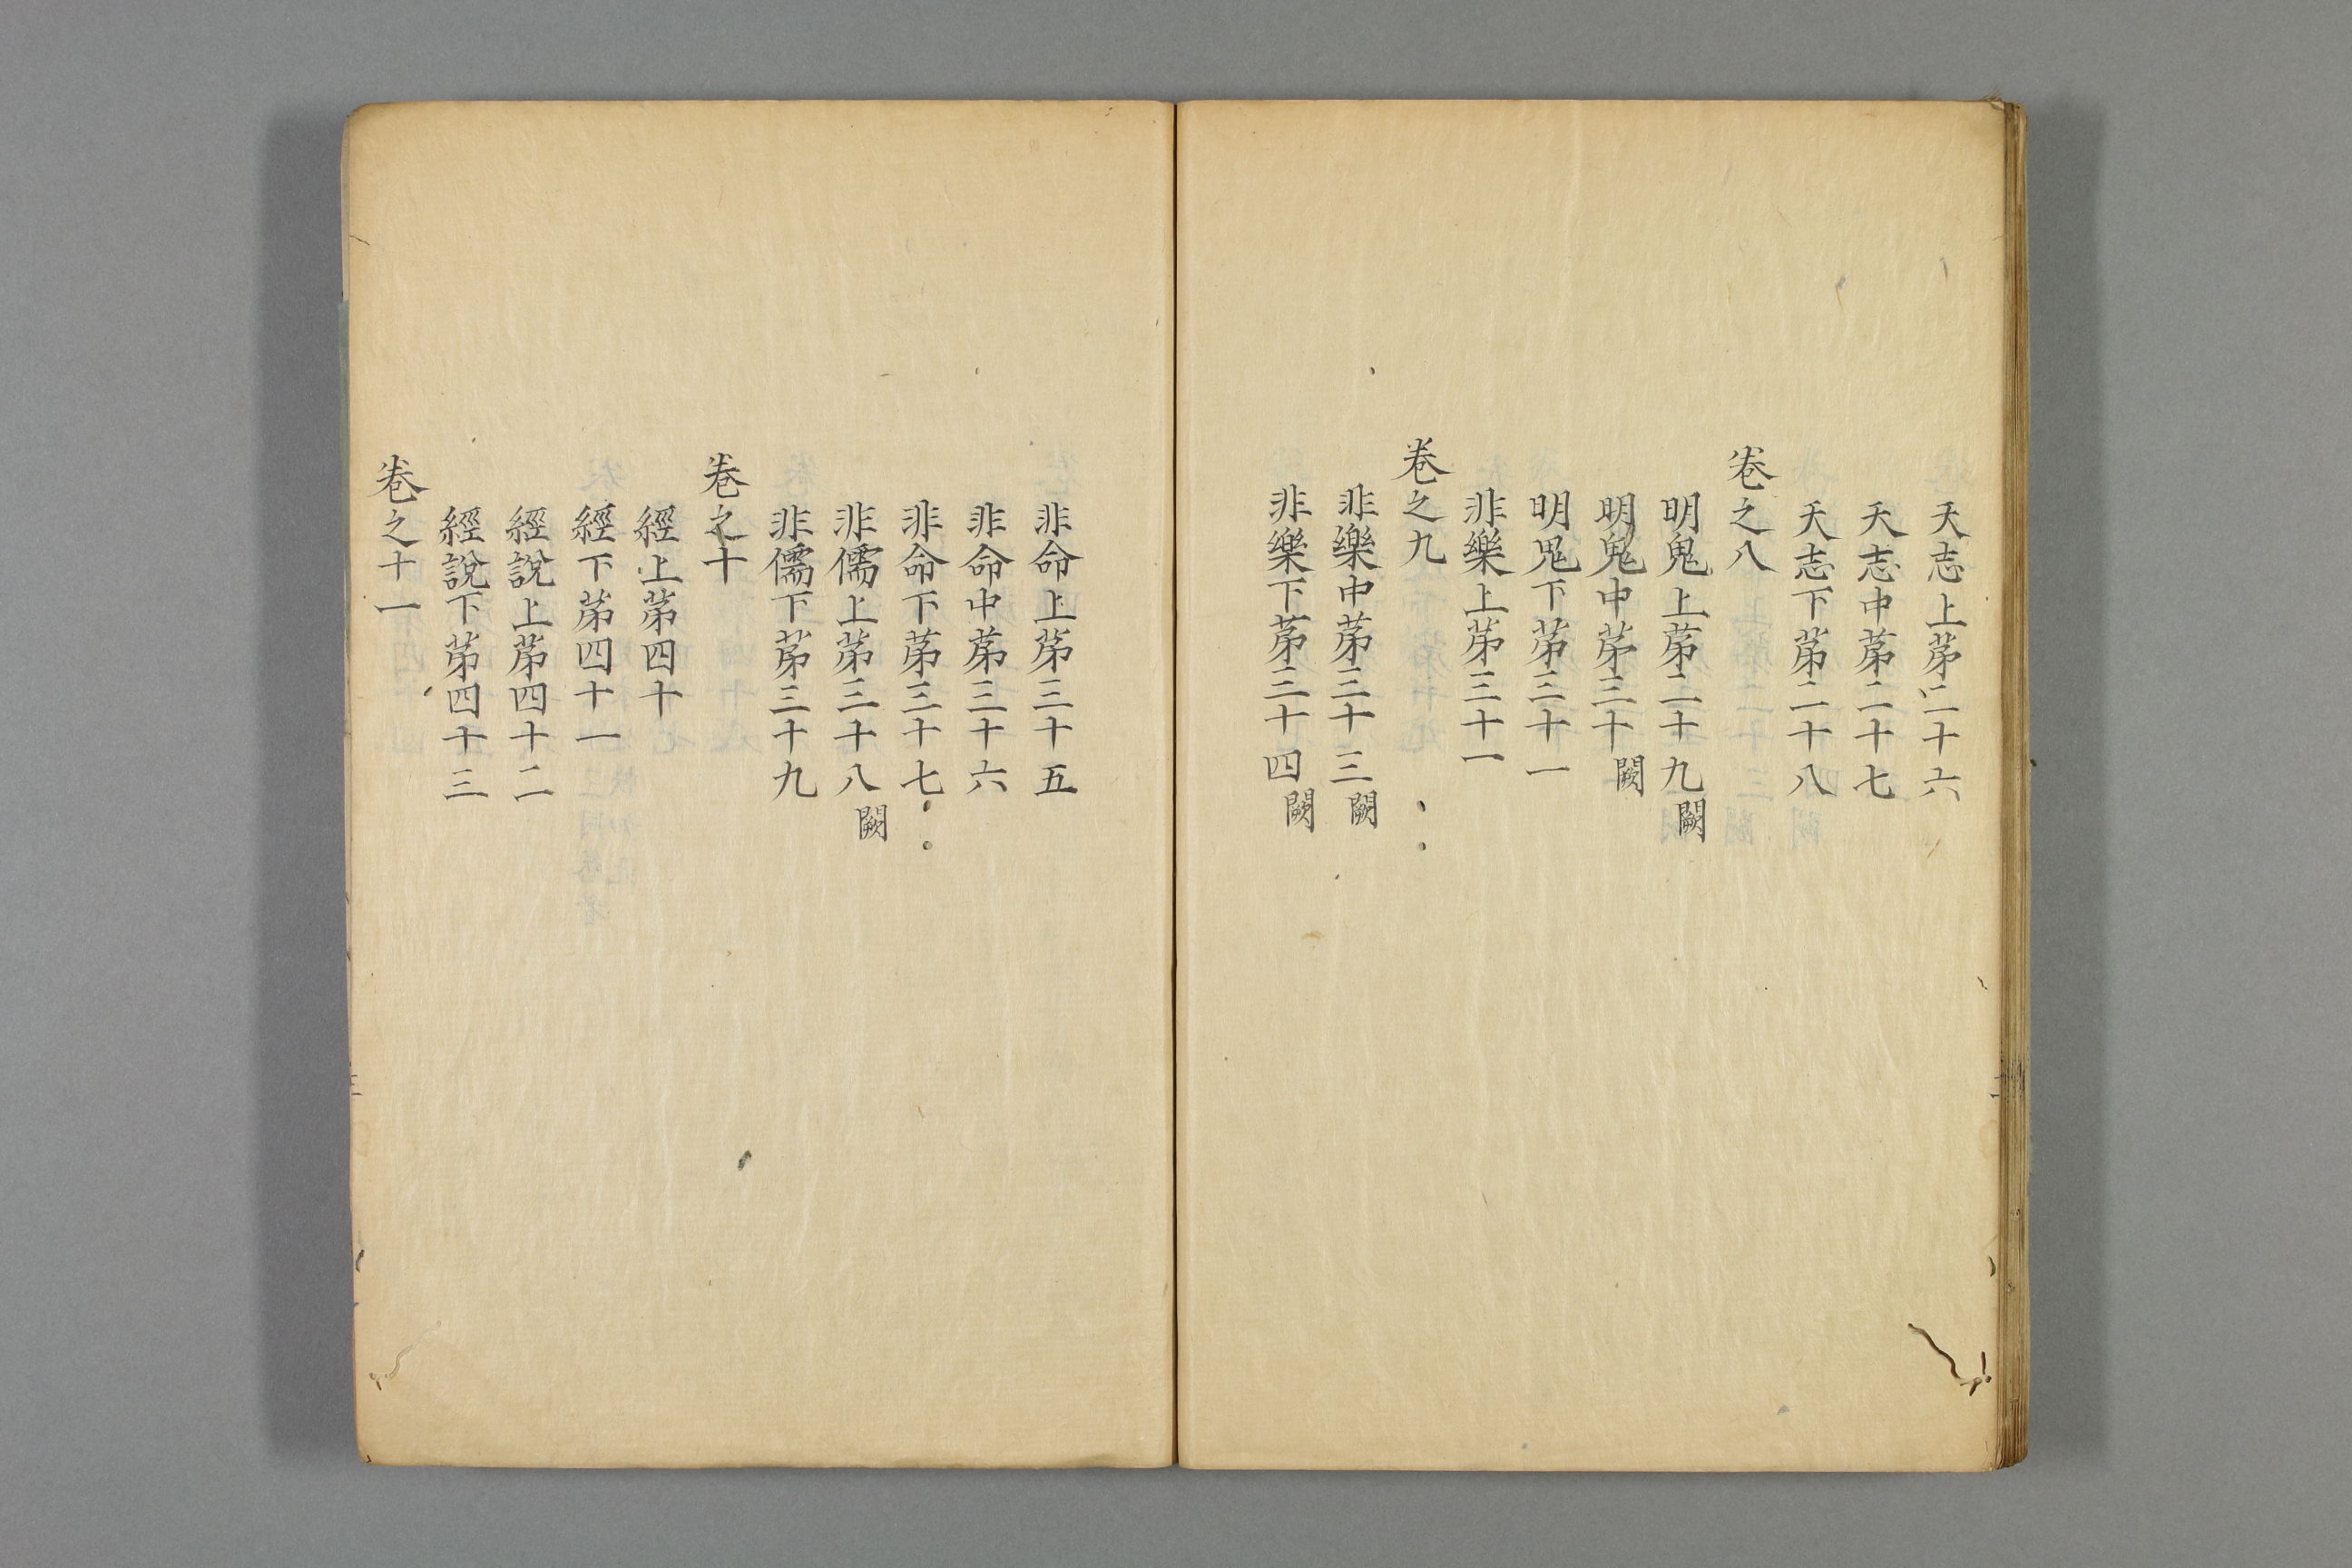 天志上苐二十六
天志中苐二十七
天志下苐二十八
卷之八
明鬼上苐二十九闕
明鬼中苐三十闕
明鬼下苐三十一
非樂上苐三十一
卷之九
非樂中苐三十三闕
非樂下苐三十四闕
非命上苐三十五
非命中苐三十六
非命下苐三十七
非儒上苐三十八闕
非儒下苐三十九
卷之十
經上苐四十
經下苐四十一
經說上苐四十二
經說下苐四十三
卷之十一